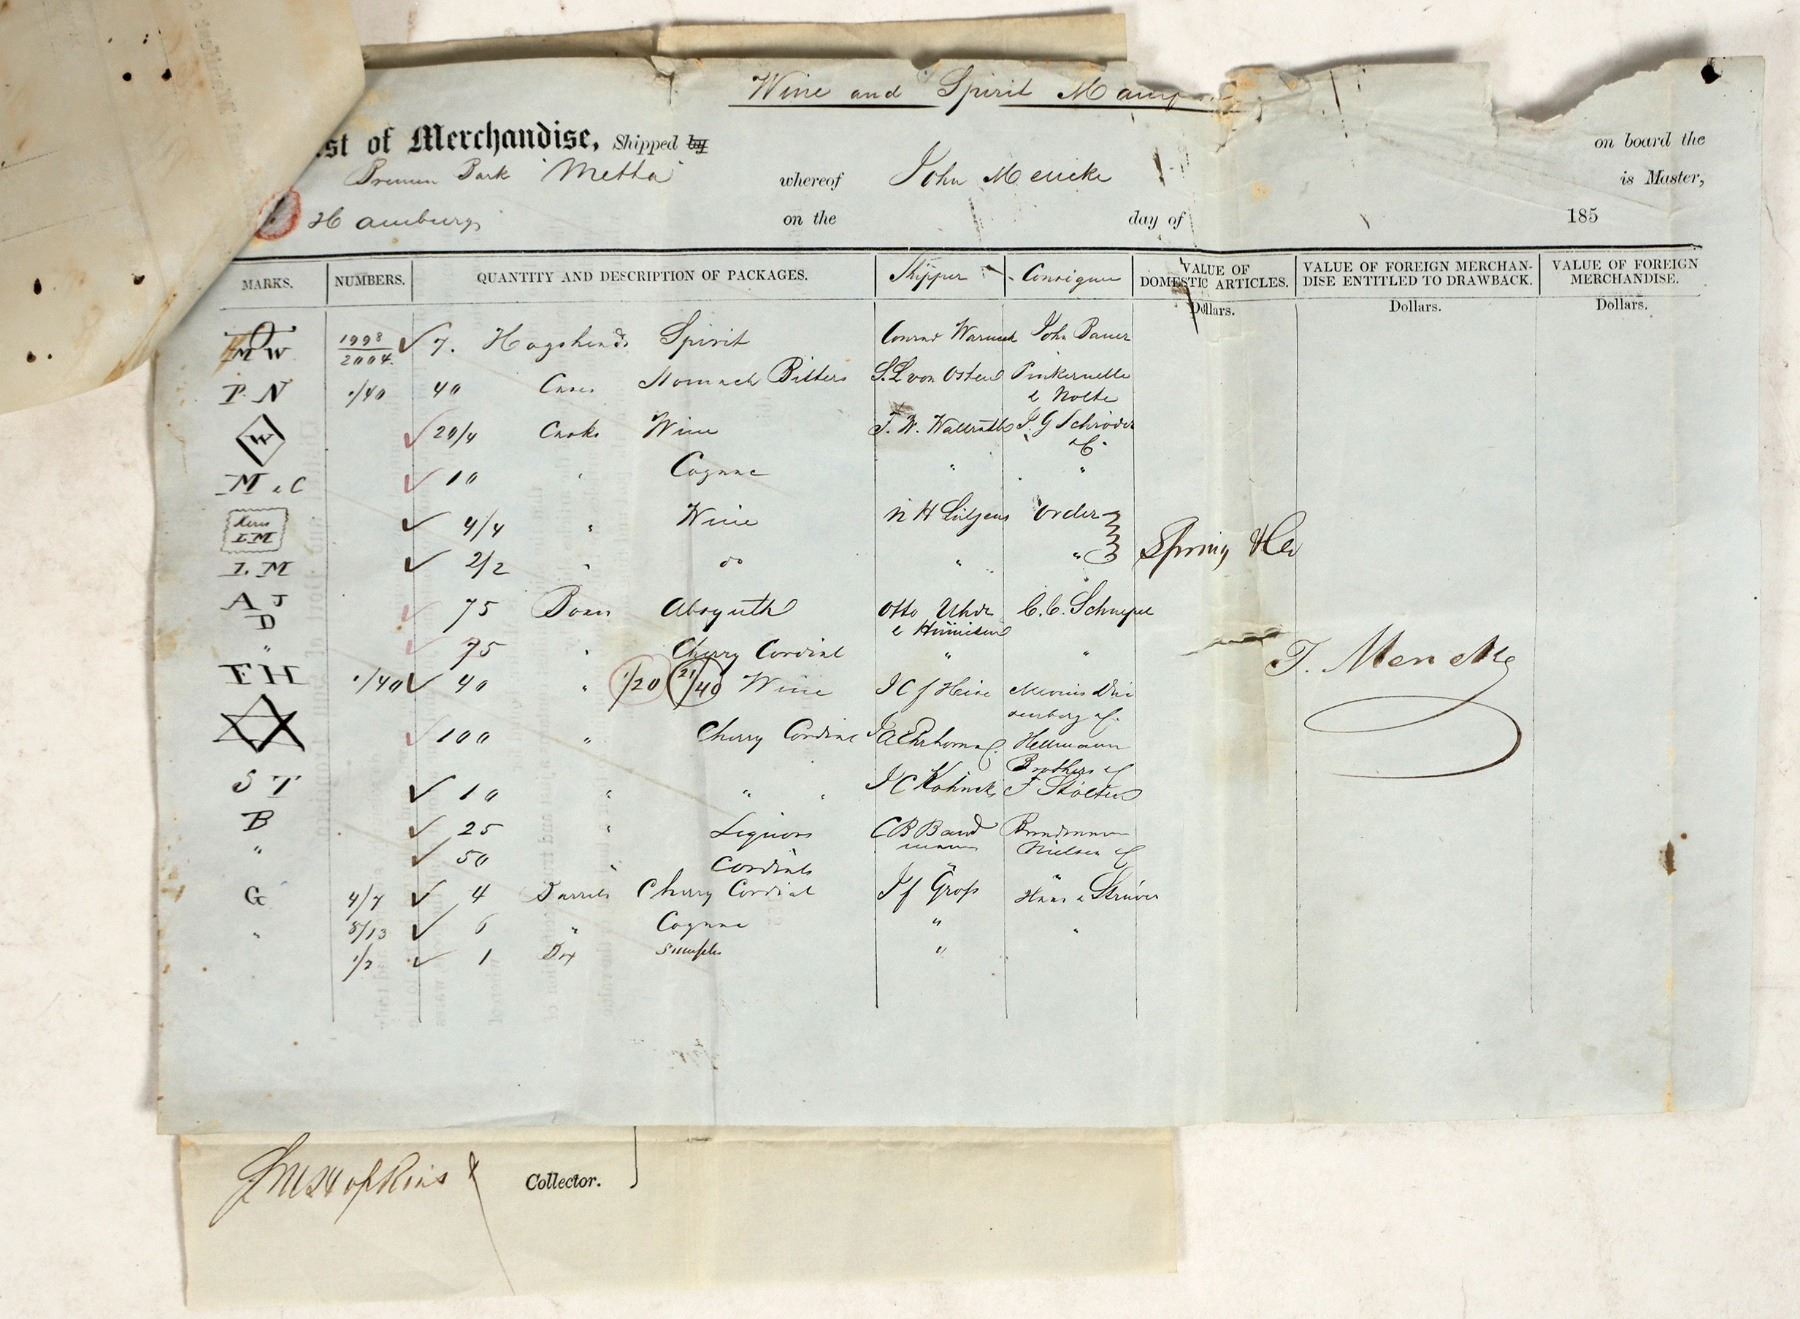 Wine and Spirit
st of Merchandise, Shipped by on board the
Bremen Bark "Metta" whereof John Mencke is Master,
Hamburg on the day of 185
MARKS. NUMBERS. QUANTITY AND DESCRIPTION OF PACKAGES. Shipper Consignee VALUE OF DOMESTIC ARTICLES. VALUE OF FOREIGN MERCHAN-DISE ENTITLED TO DRAWBACK. VALUE OF FOREIGN MERCHANDISE.
Dollars. Dollars. Dollars.
M W 1998/2004. 7. Hogsheads Spirit Conrad Warneck John Bauer
P. N 1/40 40 Cases Stomach Bitters S. L von Osten Pinkernelle
& Nolte
W 20/4 Casks Wine J. W. Wallrath J. G Schröder
& C
M & C 10 " Cognac " "
I.M 4/4 " Wine N H Lütjens Order
I. M 2/2 " do " " Spring & Co
A J D 75 Boxes Absynth Otto Uhde C. C. Schnepel
" 75 " Cherry Cordial " "
F H 1/40 40 " 1/20 21/40 Wine J C J Heise
J. Mencke
100 " Cherry Cordial Hellmann
Brothers & C
S T 10 " " " J C Köhnck F Stolten
B 25 " Liquors C B Band
mann Nielsen & C
" 50 " Cordials "
G 4/7 4 Barrels Cherry Cordial J f Gross Haas & Strüver
" 8/13 6 " Cognac " "
1/2 1 Box Samples "
Collector.